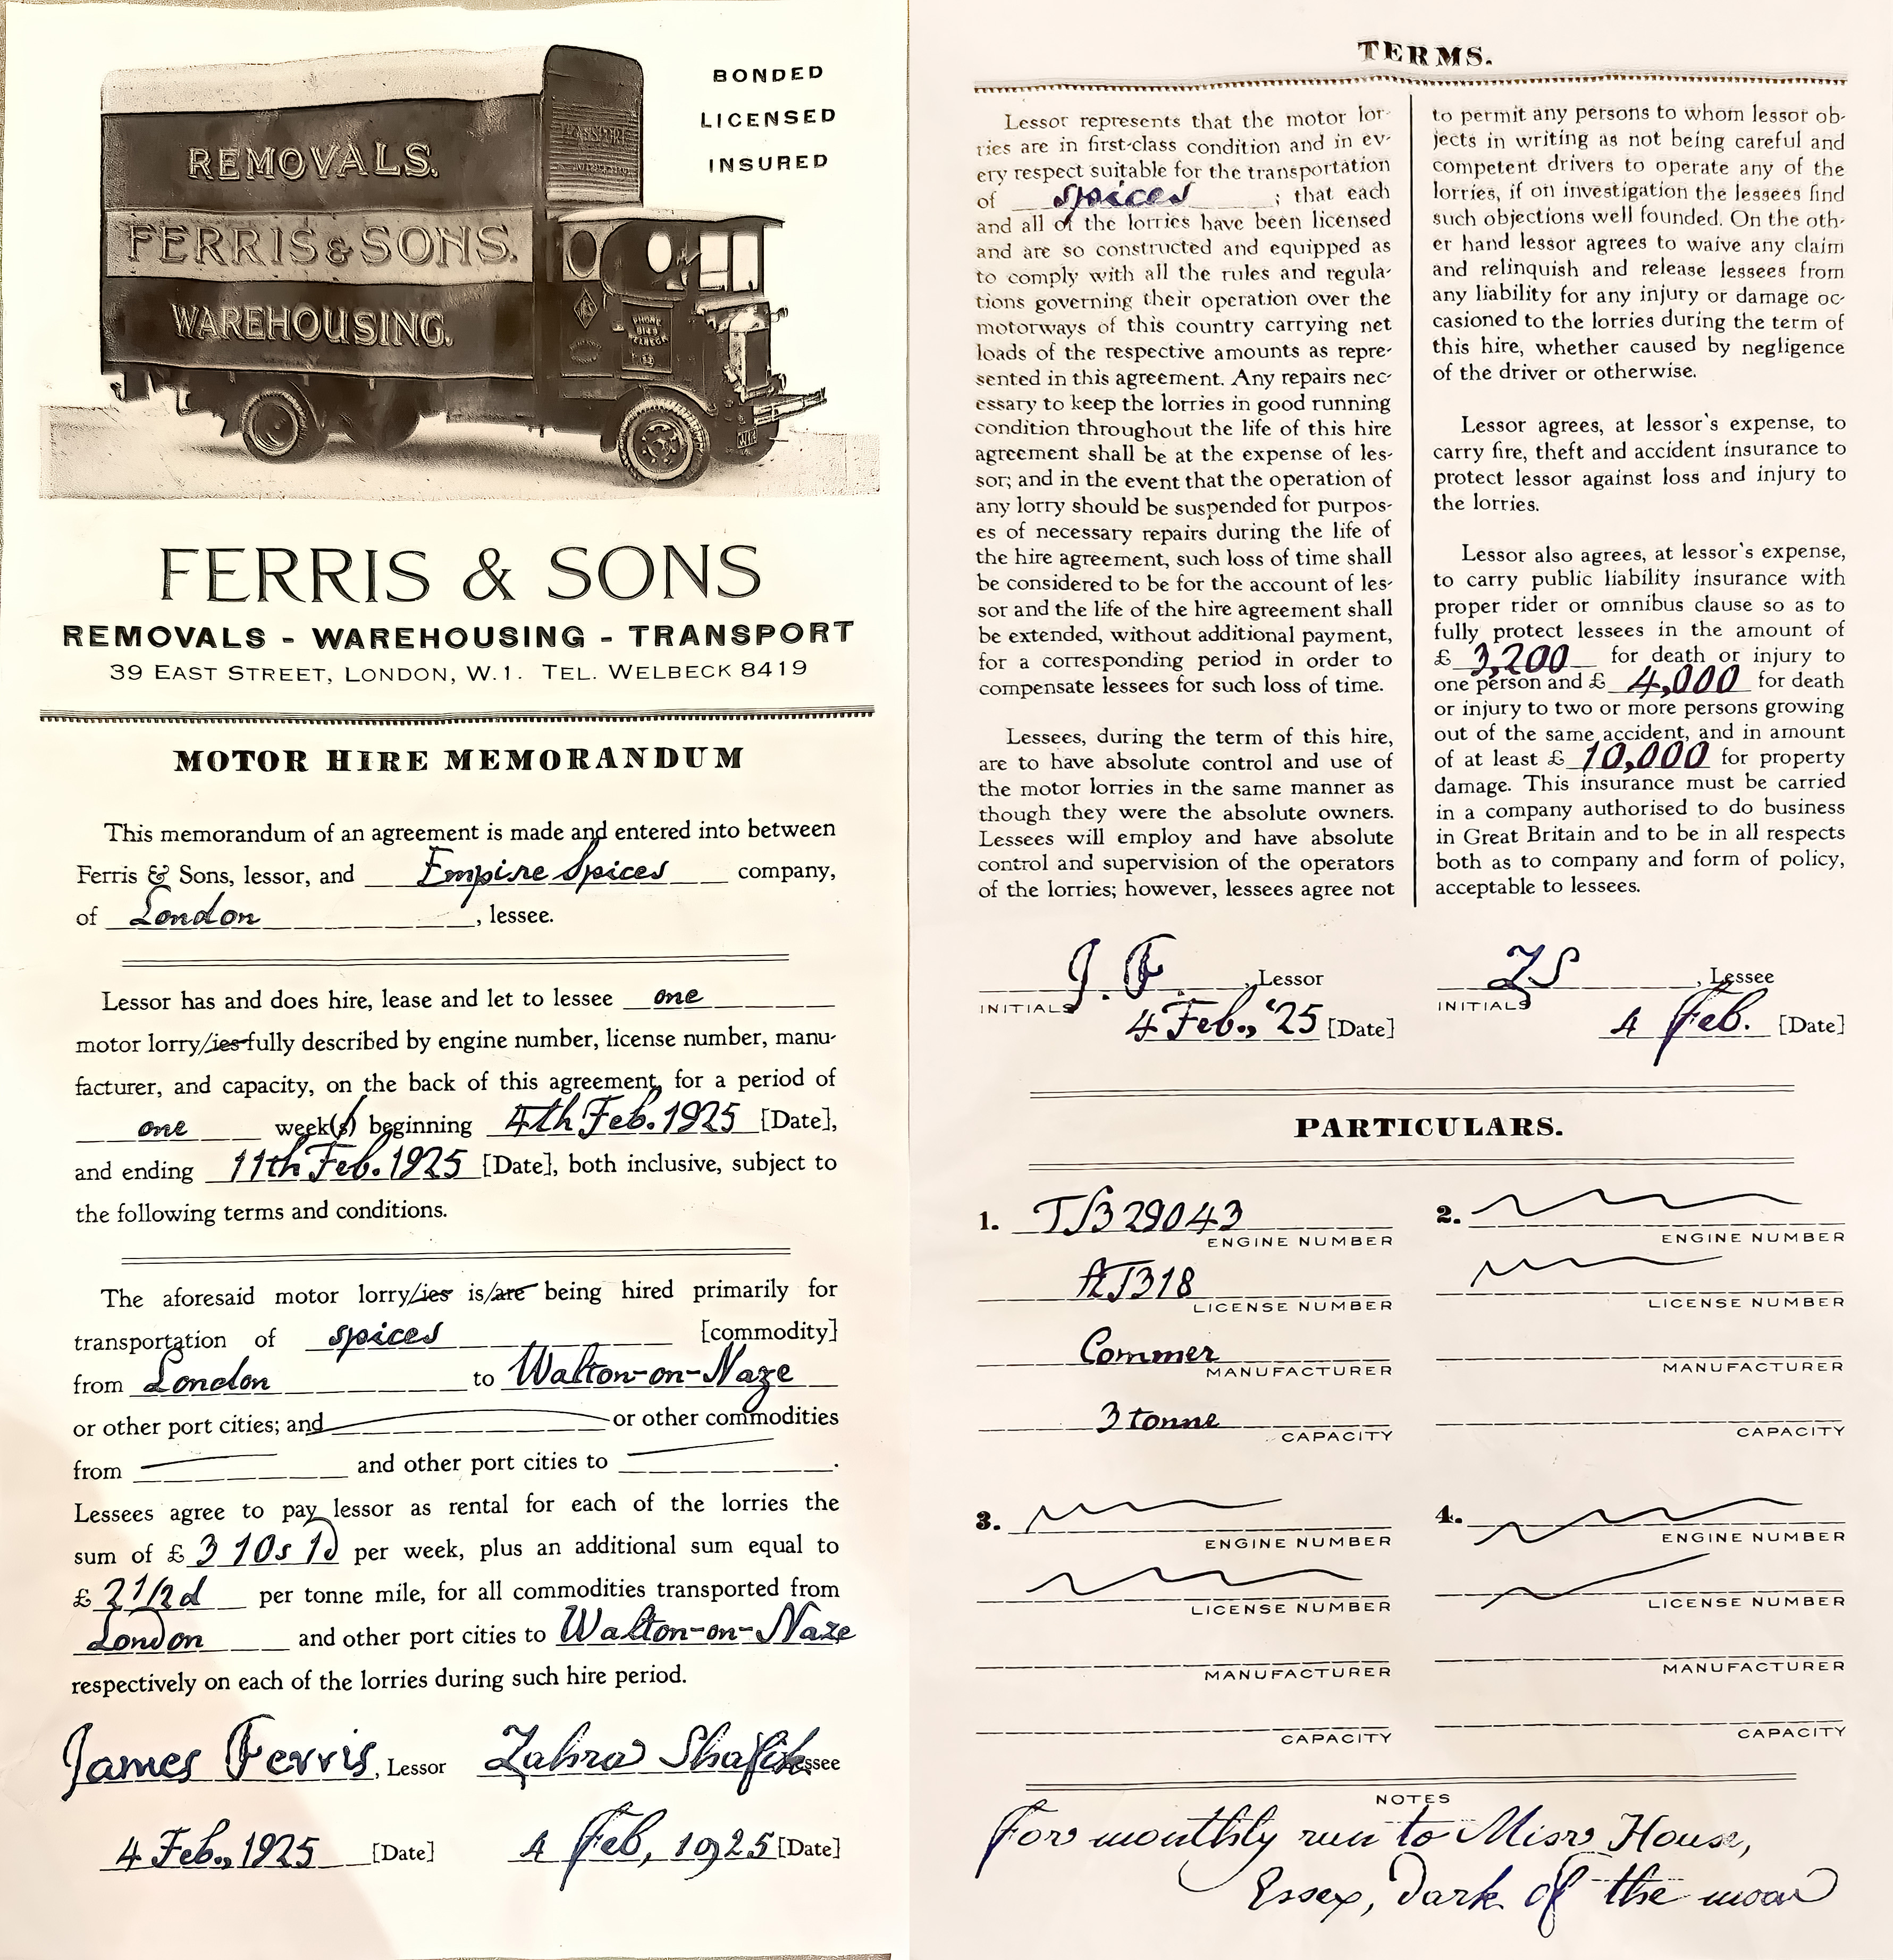 BONDED
LICENSED
INSURED
REMOVALS.
FERRIS & SONS.
WAREHOUSING.
FERRIS & SONS
REMOVALS - WAREHOUSING - TRANSPORT
39 EAST STREET, LONDON, W.1. TEL. WELBECK 8419
MOTOR HIRE MEMORANDUM
This memorandum of an agreement is made and entered into between
Ferris & Sons, lessor, and Empire Spices company,
of London, lessee.
Lessor has and does hire, lease and let to lessee one
motor lorry/ies fully described by engine number, license number, manu-
facturer, and capacity, on the back of this agreement, for a period of
one week(s) beginning 4th Feb. 1925 [Date],
and ending 11th Feb. 1925 [Date], both inclusive, subject to
the following terms and conditions.
The aforesaid motor lorry/ies is/are being hired primarily for
transportation of spices [commodity]
from London to Walton-on-Naze
or other port cities; and or other commodities
from and other port cities to .
Lessees agree to pay lessor as rental for each of the lorries the
sum of £ 3 10s 1d per week, plus an additional sum equal to
£ 2 1/2d per tonne mile, for all commodities transported from
London and other port cities to Walton-on-Naze
respectively on each of the lorries during such hire period.
James Ferris, Lessor Zahra Shafik Lessee
4 Feb., 1925 [Date] 4 Feb, 1925 [Date]
TERMS.
Lessor represents that the motor lor-
ries are in first-class condition and in ev-
ery respect suitable for the transportation
of spices ; that each
and all of the lorries have been licensed
and are so constructed and equipped as
to comply with all the rules and regula-
tions governing their operation over the
motorways of this country carrying net
loads of the respective amounts as repre-
sented in this agreement. Any repairs nec-
essary to keep the lorries in good running
condition throughout the life of this hire
agreement shall be at the expense of les-
sor; and in the event that the operation of
any lorry should be suspended for purpos-
es of necessary repairs during the life of
the hire agreement, such loss of time shall
be considered to be for the account of les-
sor and the life of the hire agreement shall
be extended, without additional payment,
for a corresponding period in order to
compensate lessees for such loss of time.
Lessees, during the term of this hire,
are to have absolute control and use of
the motor lorries in the same manner as
though they were the absolute owners.
Lessees will employ and have absolute
control and supervision of the operators
of the lorries; however, lessees agree not
to permit any persons to whom lessor ob-
jects in writing as not being careful and
competent drivers to operate any of the
lorries, if on investigation the lessees find
such objections well founded. On the oth-
er hand lessor agrees to waive any claim
and relinquish and release lessees from
any liability for any injury or damage oc-
casioned to the lorries during the term of
this hire, whether caused by negligence
of the driver or otherwise.
Lessor agrees, at lessor's expense, to
carry fire, theft and accident insurance to
protect lessor against loss and injury to
the lorries.
Lessor also agrees, at lessor's expense,
to carry public liability insurance with
proper rider or omnibus clause so as to
fully protect lessees in the amount of
£ 3,200 for death or injury to
one person and £ 4,000 for death
or injury to two or more persons growing
out of the same accident, and in amount
of at least £ 10,000 for property
damage. This insurance must be carried
in a company authorised to do business
in Great Britain and to be in all respects
both as to company and form of policy,
acceptable to lessees.
J. F. , Lessor
INITIALS
4 Feb., '25 [Date]
ZS , Lessee
INITIALS
4 Feb. [Date]
PARTICULARS.
1. TS329043
ENGINE NUMBER
AT318
LICENSE NUMBER
Commer
MANUFACTURER
3 tonne
CAPACITY
2.
ENGINE NUMBER
LICENSE NUMBER
MANUFACTURER
CAPACITY
3.
ENGINE NUMBER
LICENSE NUMBER
MANUFACTURER
CAPACITY
4.
ENGINE NUMBER
LICENSE NUMBER
MANUFACTURER
CAPACITY
NOTES
For monthly run to Misr House,
Essex, dark of the moon